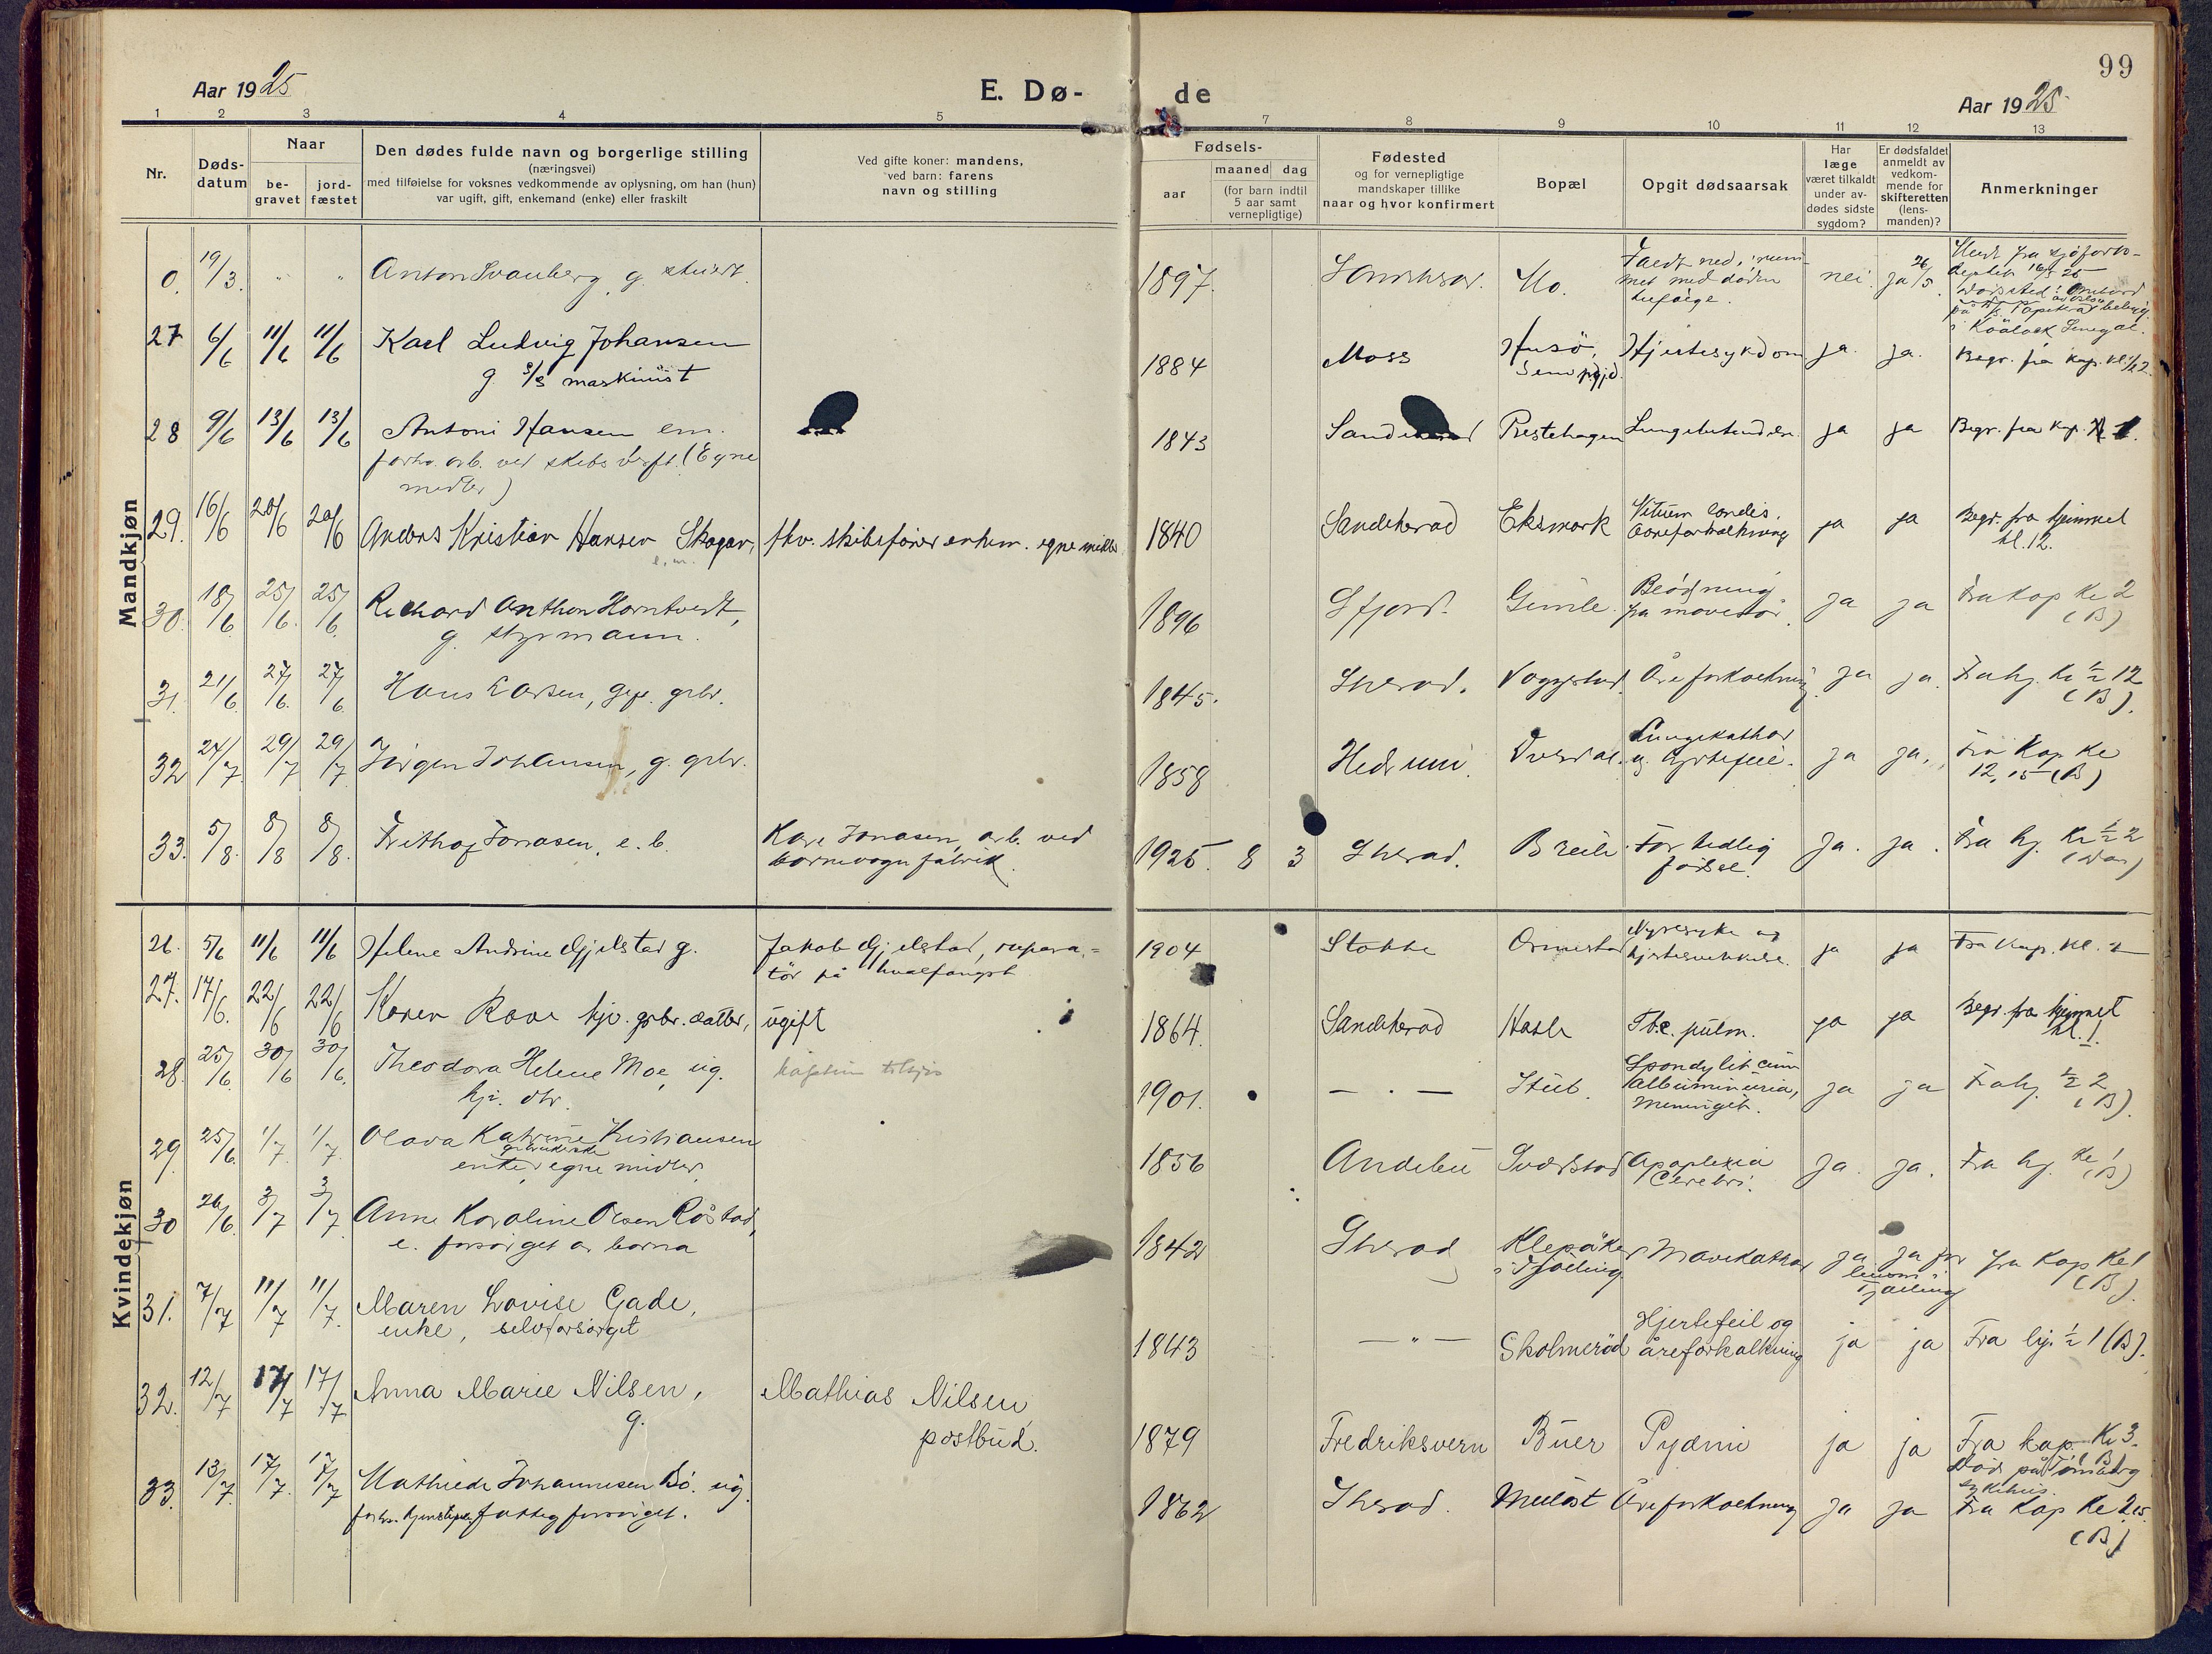 99
Aar 1925
E. Dø-
de
Aar 1925
1 2 3 4 5 7 8 9 10 11 12 13
Nr.
Døds-
datum
Naar
be-
gravet
jord-
fæstet
Den dødes fulde navn og borgerlige stilling
(næringsvei)
med tilføielse for voksnes vedkommende av oplysning, om han (hun)
var ugift, gift, enkemand (enke) eller fraskilt
Ved gifte koner: mandens,
ved barn: farens
navn og stilling
Fødsels-
aar
maaned dag
(for barn indtil
5 aar samt
vernepligtige)
Fødested
og for vernepligtige
mandskaper tillike
naar og hvor konfirmert
Bopæl
Opgit dødsaarsak
Har
læge
været tilkaldt
under av-
dødes sidste
sygdom?
Er dødsfaldet
anmeldt av
vedkom-
mende for
skifteretten
(lens-
manden)?
Anmerkninger
Mandkjøn
0. 19/3. " " Anton Svanberg, g. stuert. 1897. Mo. nei. ja 26/5.
met med døden
tilfølge.
27 6/6 11/6 11/6 Karl Ludvig Johansen 1884 Moss Husö, Hjertesykdom ja. ja. Begr. fra kap. kl. 1/2 2.
g. s/s maskinist
Sem pgjd.
28 9/6 13/6 13/6 Antoni Hansen em. 1843 Prestehagen ja ja Begr. fra kap. 1.
forhv. arb. ved skibsverft. (Egne
midler)
29. 16/6 20/6 20/6 Anders Kristian Hansen Skogan, fhv. skibsfører enkem. egne midler 1840 Sandeherad Eksmark ja ja Begr. fra hjemmet
e.m.
Aareforkalkning
kl. 12.
30. 18/6 25/6. 25/6. Richard Anthon Horntvedt, 1896 Sfjord. Gimle. Blødning ja ja Fra kap Kl 2
g. styrmann.
fra mavesår.
(B)
31. 21/6. 27/6. 27/6 Hans Larsen, g. grbr. 1845. Sherad. Åreforkalkning ja ja. Fra hj. Kl 1/2 12
(B).
32 24/7. 29/7 29/7 Jørgen Johansen, g. grbr. 1858 Hedrum. Lungekathar ja ja. Fra Kap Kl
og hjertefeil.
12,15 (B)
33. 5/8. 8/8 8/8. Frithof Jonasen, e. b. Kåre Jonasen, arb. ved 1925. 8 3 Sherad. Breili For tidlig ja. ja. Fra hj. Kl 1/2 2
barnevogn fabrik.
fødsel.
Kvindekjøn
26. 5/6 11/6 11/6 Helene Andrine Gjelstad g. Jakob Gjelstad, repara- 1904 Stokke Ormestad Nyresyke og ja ja Fra kap. kl. 2
tör på hvalfangst
hjertesvekkelse.
27. 17/6. 22/6 22/6 Karen Rove hjv. grbr. datter, ugift 1864. Sandeherad Hasle Tbc. pulm. ja ja Begr. fra hjemmet
kl. 1.
28. 25/6. 30/6 30/6. Theodora Helene Moe, ug. 1901. — . — Stub. Spondylit cum ja ja Fra hj. 1/2 2
hjv. dtr.
albuminuria,
Meningit.
(B).
29. 25/6. 1/7. 1/7. Olava Katrine Kristiansen 1856 Andebu Apoplexia ja. ja. Fra hj. Kl 1
enke, egne midler,
Cerebri.
(B)
30 26/6. 3/7 3/7. Anne Karoline Olsen Råstad, 1842 Sherad Klepåker Mavekathar ja ja for Fra kap Kl 1
e. forsörget av barna
i Tjølling
Tjølling
(B).
31. 7/7 11/7 11/7. Maren Lovise Gade, 1843 — " — Skolmerød Hjertefeil og ja ja Fra hj. 1/2 1 (B).
enke, selvforsørget
åreforkalkning
32. 12/7 17/7 17/7 Anna Marie Nilsen, Mathias Nilsen 1879 Fredriksvern Buer Pyæmi ja ja Fra kap. Kl 3.
g.
postbud.
(B)
Död på Tønsberg
sykehus.
33. 13/7. 17/7. 17/7 Mathilde Johannesen Bö. ug. 1862 Sherad. Åreforkalkning ja ja Fra Kap Kl 2.15.
forhv. tjenestepike, fattig forsørget.
(B)